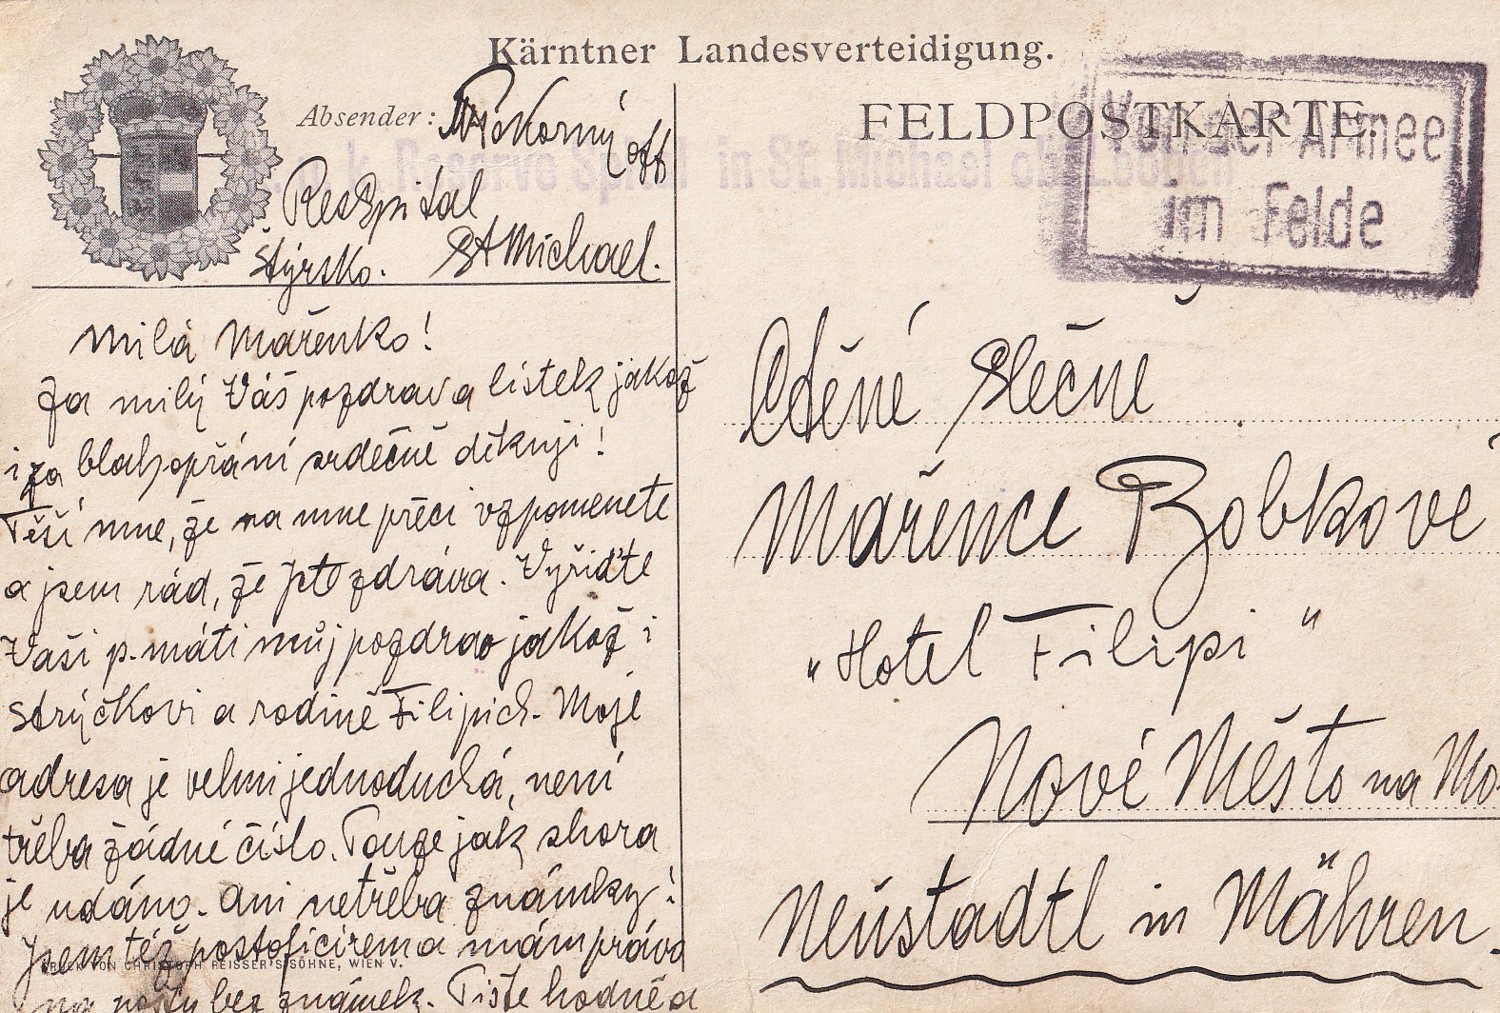 Kärntner Landesverteidigung.
Absender: Pokorný off
FELDPOSTKARTE.
Von der Armee
im Felde
k. Reserve Spital in St. Michael ob Leoben
ResSpital
Štýrsko. St Michael.
Milá Mařenko!
Za milý Váš pozdrav a lístek jakož
i za blahopřání srdečně děkuji!
Těší mne, že na mne přeci vzpomenete
a jsem rád, že jste zdráva. Vyřiďte
Vaší p. máti můj pozdrav jakož i
strýčkovi a rodině Filipich. Moje
adresa je velmi jednoduchá, není
třeba žádné číslo. Pouze jak shora
je udáno. Ani netřeba známky!
Jsem též postoficírem a mám právo
na poštu bez známek. Pište hodně a
DRUCK VON CHRISTOPH REISSER'S SÖHNE, WIEN V.
Ctěné Slečně
Mařence Bobkové
„Hotel Filipi"
Nové Město na Mo
Neustadtl in Mähren.